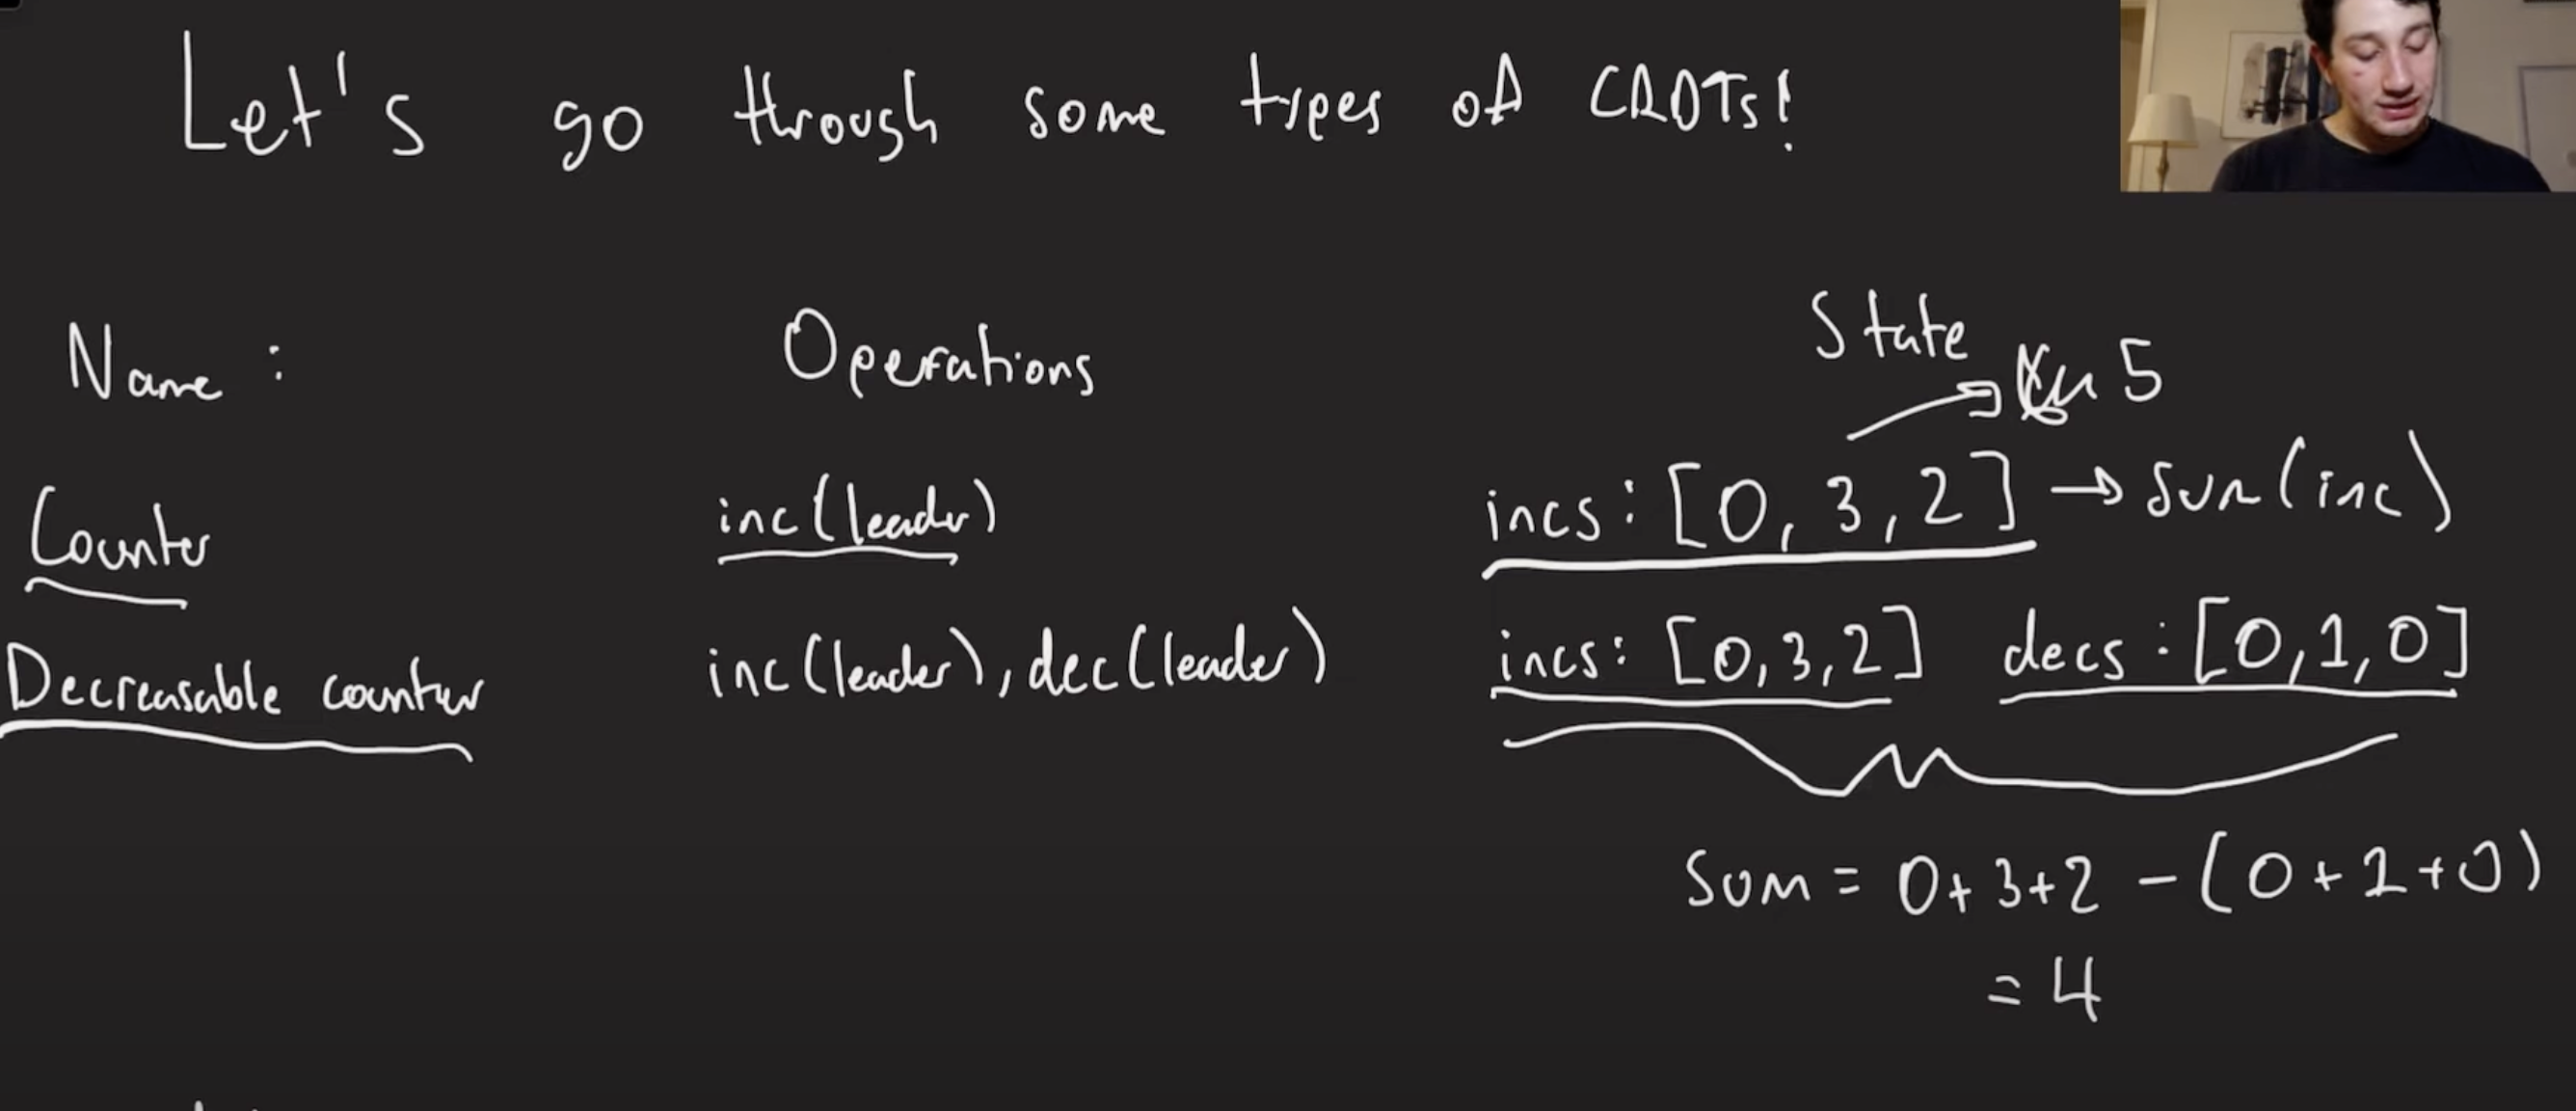 Let's go through some types of CRDTs!
Name : Operations State
5
Counter inc(leader) incs: [0, 3, 2] → sum(inc)
Decreasable counter inc(leader), dec(leader) incs: [0,3,2] decs : [0,1,0]
Sum = 0+3+2 - (0+1+0)
= 4